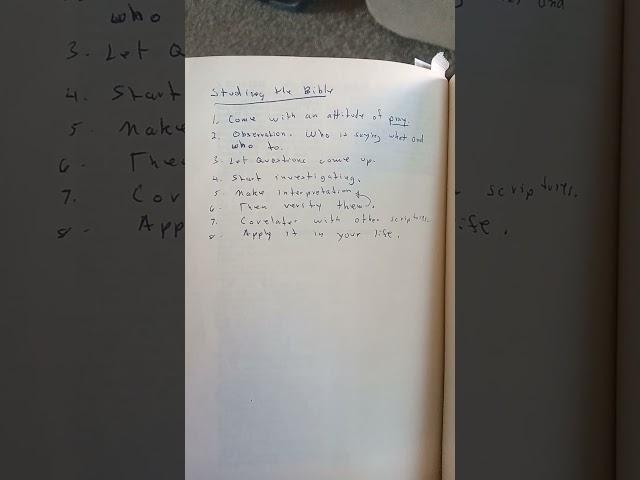 Studying the Bible
1. Come with an attitude of pray.
2. Observation. Who is saying what and
who to.
3. Let Questions come up.
4. Start investigating.
5. Make interpretation
6. Then verify them.
7. Corelater with other scriptures.
8. Apply it in your life.